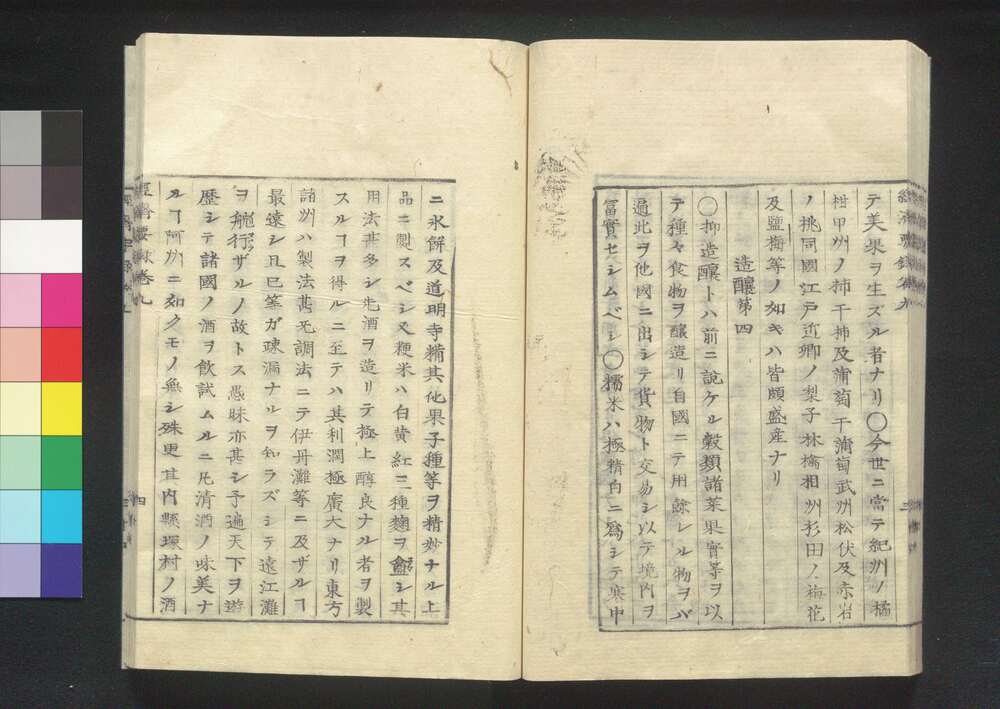 テ美果ヲ生ズル者ナリ〇今世ニ當テ紀州ノ橘
柑甲州ノ柿干柿及蒲萄干蒲萄武州松伏及赤岩
ノ桃同國江戸近鄉ノ梨子林檎相洲杉田ノ梅花
及鹽梅等ノ如キハ皆頗盛産ナリ
造釀第四
〇抑造釀トハ前ニ說ケル穀類諸菜果實等ヲ以
テ種々食物ヲ釀造リ自國ニテ用餘レル物ヲバ
過此ヲ他國ニ出シテ貨物ト交易シ以テ境内ヲ
富實セシムベシ〇糯米ハ極精白ニ爲シテ寒中
ニ氷餅及道明寺糒其他果子種等ヲ精妙ナル上
品ニ製スベシ又粳米ハ白黄紅三種麹ヲ製シ其
用法甚多シ先酒ヲ造リテ極上醇良ナル者ヲ製
スルヿヲ得ルニ至テハ其利潤極廣大ナリ東方
諸州ハ製法甚无調法ニテ伊丹灘等ニ及ザルヿ
最遠シ且巳等ガ疎漏ナルヲ知ラズシテ遠江灘
ヲ航行ザルノ故トス愚昧亦甚シ予遍天下ヲ遊
歷シテ諸國ノ酒ヲ飲試ムルニ凡清酒ノ味美ナ
ルヿ阿州ニ如クモノ無シ殊更其内縣塚村ノ酒
四